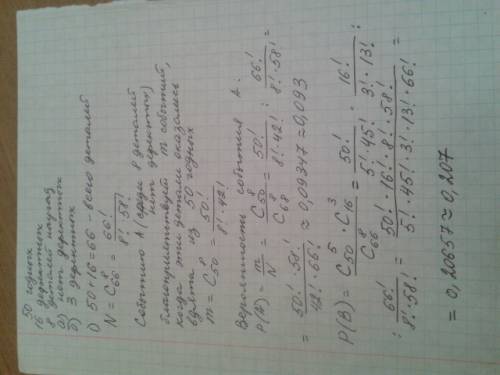 50 годных
16 дефектных
8 деталей наугад
а) нет дефектных
б) 3 дефектных
1) 50+16=66 - всего деталей
N = C⁸₆₆ = 66! / (8!·58!)
Событию А (среди 8 деталей
нет дефектных)
благоприятствует m событий,
когда эти детали оказались
взяты из 50 годных
m = C⁸₅₀ = 50! / (8!·42!)
Вероятность события А:
P(A) = m/N = C⁸₅₀ / C⁸₆₆ = 50! / (8!·42!) : 66! / (8!·58!) =
= (50!·58!) / (42!·66!) ≈ 0,09347 ≈ 0,093
P(B) = (C⁵₅₀ · C³₁₆) / C⁸₆₆ = 50! / (5!·45!) · 16! / (3!·13!) :
: 66! / (8!·58!) = (50!·16!·8!·58!) / (5!·45!·3!·13!·66!) =
= 0,20657 ≈ 0,207